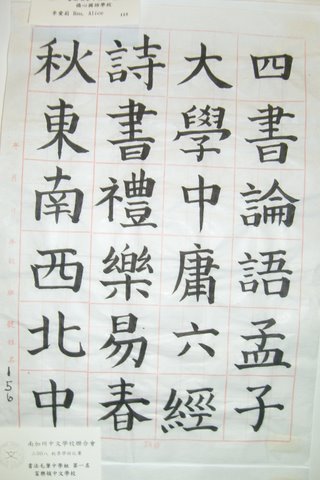 培心國語學校
Hsu, Alice
四書論語孟子
大學中庸六經
詩書禮樂易春
秋東南西北中
156
南加州中文學校聯合會
書法毛筆中學組 第一名